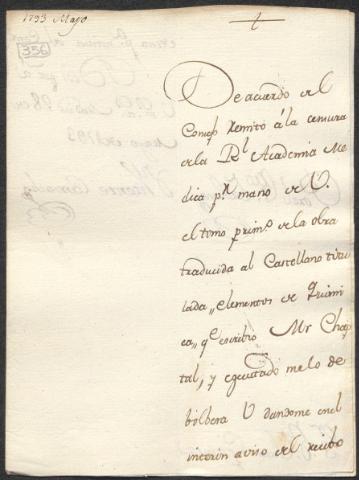 1793 Mayo
356
De acuerdo del
Consejo remito á la censura
de la Rl. Academia Me
dica pr. mano de V.
el tomo primo. de la obra
traducida al Castellano titu
lada, elementos de Quimi
ca, qe. escribio Mr Chap
tal, y egecutado me lo de
bolbera V dandome en el
interin aviso del recibo